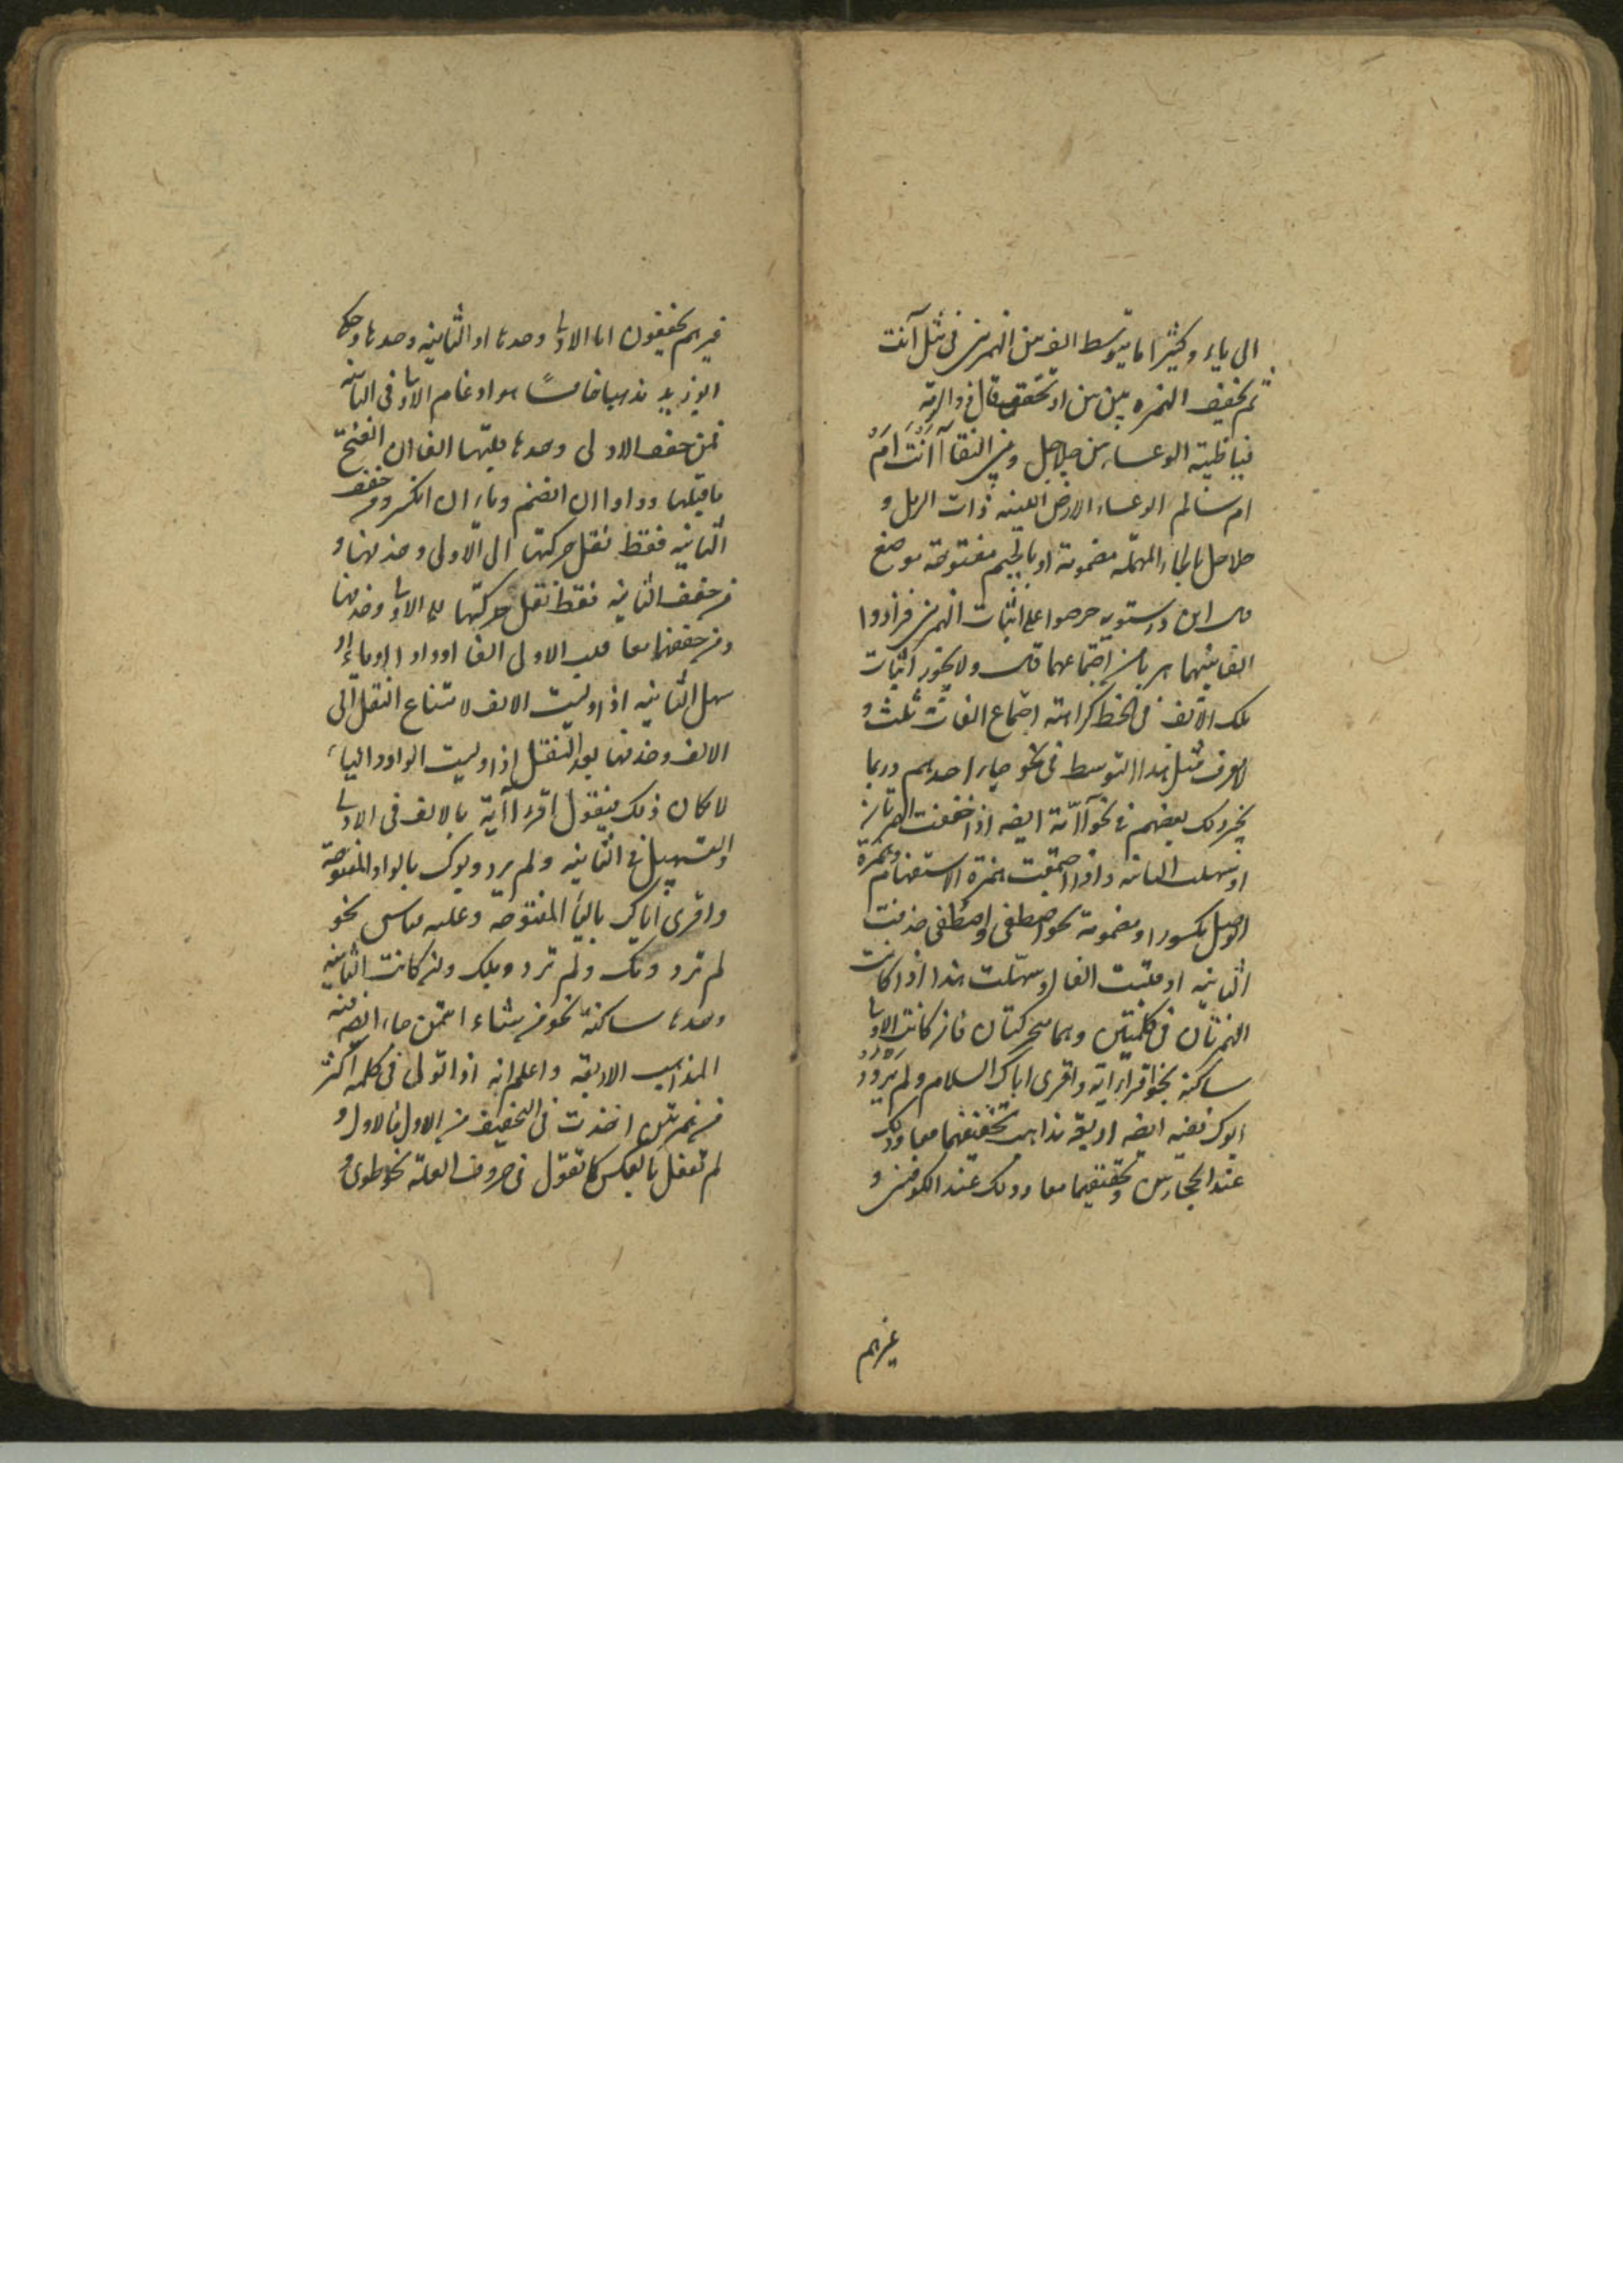 الى ياء وكثيرا ما يتوسط الف بين الهمزتين فى مثل أأنت
ثم يخفف الهمزه بين بين او تحقق قال ذو الرمه
فيا ظبية الوعساء بين جلاجل وبين النقا أأنت أم
ام سالم الوعساء الارض اللينه ذات الرمل و
حلاحل بالحاء المهمله مضمومة او بالجيم مفتوحة موضع
قال ابن درستويه حرصوا على اثبات الهمزتين فزادوا
الفا بينهما هربا من اجتماعهما قال ولا يجوز اثبات
تلك الالف فى الخط كراهته اجتماع الفات ثلث و
لا يعرف مثل هذا التوسط فى نحو جاء احدهم وربما
يجرى ذلك بعضهم فى نحو آائمة ايضه اذا خففت الهمزتان
او سهلت الثانيه واذا اجتمعت همزة الاستفهام وهمزة
الوصل مكسوره او مضمومة نحو اصطفى واصطفى حذفت
الثانيه او قلبت الفا او سهلت هذا اذا كانت
الهمزتان فى كلمتين وهما متحركتان فان كانت الاولى
ساكنة نحو اقرأ اية واقرى اباك السلام ولم يردؤ
ابوك ففيه ايضه اربعة مذاهب تخفيفهما معا وذلك
عند الحجازيين وتحقيقهما معا وذلك عند الكوفيين و
غيرهم
غيرهم يخففون اما الاولى وحدها او الثانيه وحدها وحكى
ابو زيد مذهبا خامسًا هو ادغام الاولى فى الثانيه
فمن خفف الاولى وحدها قلبها الفا ان انفتح
ما قبلها وواوا ان انضم وياء ان انكسر ومن خفف
الثانيه فقط نقل حركتها الى الاولى وحذفها و
من خفف الثانيه فقط نقل حركتها الى الاولى وحذفها
ومن خففهما معا قلب الاولى الفا او واوا او ياء او
سهل الثانيه اذا وليت الالف لامتناع النقل الى
الالف وحذفها بعد النقل اذا وليت الواو والياء
لامكان ذلك فيقول اقرء اأية بالالف فى الاولى
والتسهيل فى الثانيه ولم يردوبوك بالواو المفتوحة
واقرى اياك بالياء المفتوحة وعليه قياس نحو
لم تردومك ولم تردوبلك وان كانت الثانيه
وحدها ساكنة نحو من يشاء ائتمن جاء ايضه فيه
المذاهب الاربعة واعلم انه اذا توالى فى كلمة اكثر
من همزتين اخذت فى التخفيف من الاول فالاول و
لم تفعل بالعكس كما تقول فى حروف العلة نحو طوى و